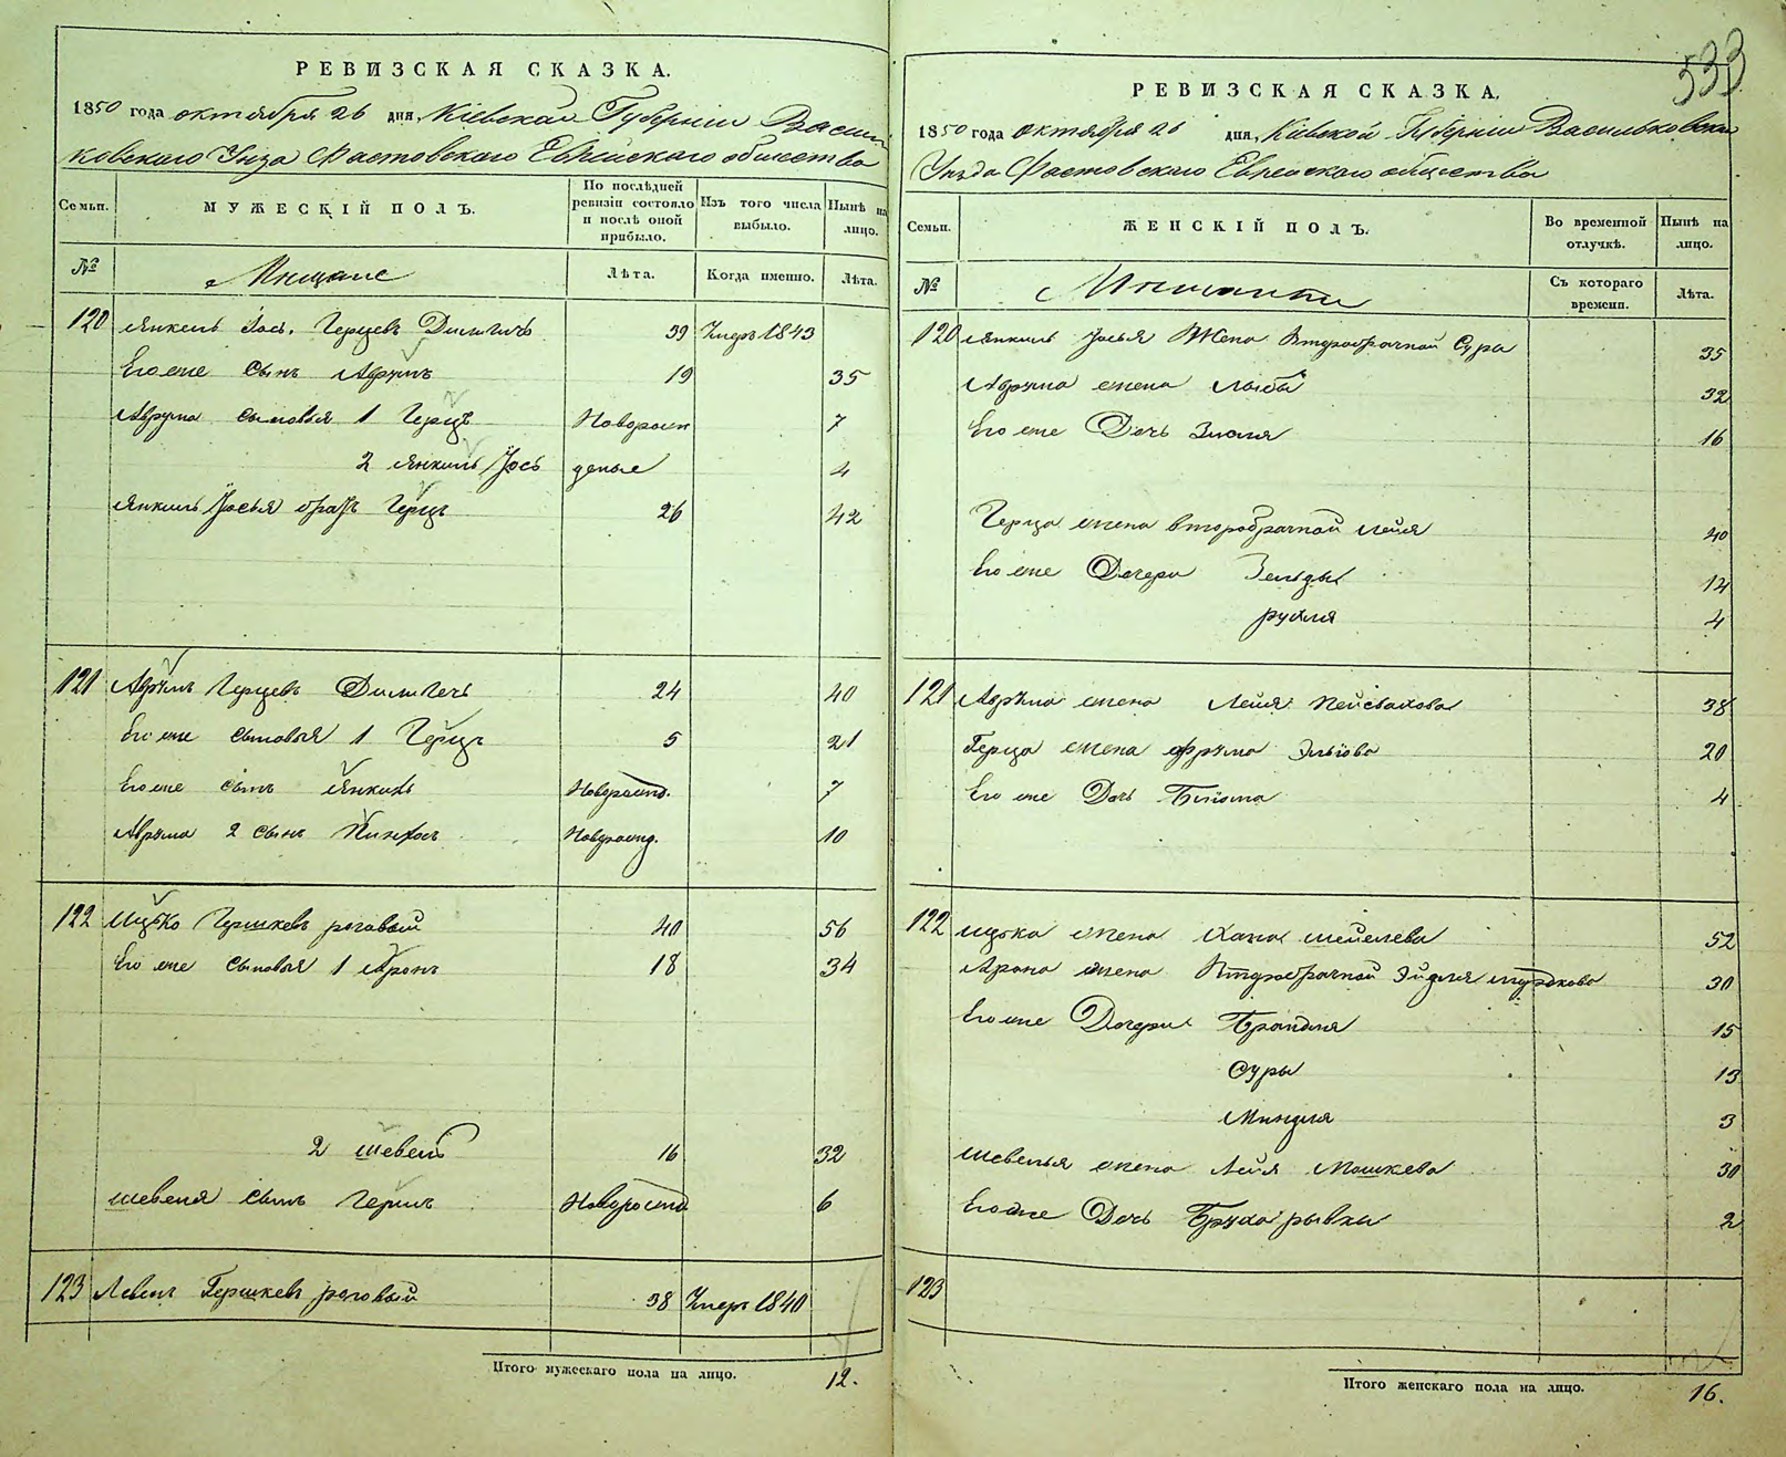 РЕВИЗСКАЯ СКАЗКА.
1850 года октября 26 дня, Кіевской Губерніи Василь
ковскаго Уѣзда Фастовскаго Еврейскаго общества
Семьи.
МУЖЕСКІЙ ПОЛЪ.
По послѣдней ревизіи состояло и послѣ оной прибыло.
Изъ того числа выбыло.
Нынѣ на лицо.
№
Мѣщане
Лѣта.
Когда именно.
Лѣта.
120 Янкель Іось Герцевъ 39 Умеръ 1843
Его же сынъ Аврумъ 19 35
Аврума сыновья 1 Герцъ Новорож 7
2 Янкель Іось деные 4
Янкель Іосья братъ Герцъ 26 42
121 Аврумъ Герцевъ 24 40
Его же сыновья 1 Герцъ 5 21
Его же сынъ Янкель Новорожд. 7
Аврума 2 сынъ Пинхас Новорожд. 10
122 Ицько Гершковъ роговый 40 56
Его же сыновья 1 Аронъ 18 34
2 шевель 16 32
шевеля сынъ Герш Новорожд 6
123 Левек Гершковъ роговый 38 Умеръ 1840
Итого мужескаго пола на лицо. 12.
533
РЕВИЗСКАЯ СКАЗКА.
1850 года октября 26 дня, Кіевской Губерніи Васильковскаго
Уѣзда Фастовскаго Еврейскаго общества
Семьи.
ЖЕНСКІЙ ПОЛЪ.
Во временной отлучкѣ.
Нынѣ на лицо.
№
Мѣщанки
Съ котораго времени.
Лѣта.
120 Янкель Іосья Жена Второбрачной Сура 35
Аврума жена 32
Его же Дочь Злотя 16
Герца жена второбрачной Лейя 40
Его же Дочери Зельды 14
рухля 4
121 Аврума жена Лейя Пейсахова 38
Герца жена Фрума Эльіова 20
Его же Дочь 4
122 Ицька жена Хана шевелева 52
Арона жена Второбрачной Эйдля мордкова 30
Его же Дочери Брандля 15
Суры 13
Миндля 3
Шевелья жена Лейя Мошкова 30
Его же Дочь Бруха рывки 2
123
Итого женскаго пола на лицо. 16.